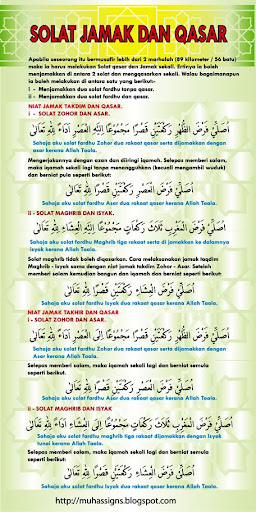 SOLAT JAMAK DAN QASAR
Apabila seseorang itu bermusafir lebih dari 2 marhalah (89 kilometer / 56 batu)
maka ia harus melakukan Solat qasar dan Jamak sekali. Ertinya ia boleh
menjamakkan di antara 2 solat dan mengqasarkan sekali. Walau bagaimanapun
ia boleh melakukan di antara satu yang berikut:-
i - Menjamakkan dua solat fardhu tanpa qasar.
ii - Menjamakkan dua solat fardhu dan qasar.
NIAT JAMAK TAKDIM DAN QASAR.
i - SOLAT ZOHOR DAN ASAR.
أُصَلِّيْ فَرْضَ الظُّهْرِ رَكْعَتَيْنِ قَصْرًا مَجْمُوْعًا إِلَيْهِ الْعَصْرُ اَدَاءً لِلّٰهِ تَعَالَى
Sahaja aku solat fardhu Zohor dua rakaat qasar serta dijamakkan dengan
asar kerana Allah Taala.
Mengerjakannya dengan azan dan diiringi iqamah. Selepas memberi salam,
maka iqamah sekali lagi tanpa menanggguhkan (kecuali mengambil wuduk)
dan berniat pula seperti berikut:
أُصَلِّيْ فَرْضَ الْعَصْرِ رَكْعَتَيْنِ قَصْرًا لِلّٰهِ تَعَالَى
Sahaja aku solat fardhu Asar dua rakaat qasar kerana Allah Taala.
ii - SOLAT MAGHRIB DAN ISYAK.
أُصَلِّيْ فَرْضَ الْمَغْرِبِ ثَلَاثَ رَكَعَاتٍ مَجْمُوْعًا إِلَيْهِ الْعِشَاءُ لِلّٰهِ تَعَالَى
Sahaja aku solat fardhu Maghrib tiga rakaat serta di jamakkan ke dalamnya
isyak kerana Allah Taala.
Solat maghrib tidak boleh diqasarkan. Cara melaksanakan jamak taqdim
Maghrib - Isyak sama dengan niat jamak takdim Zohor - Asar. Setelah
memberi salam kemudian bangun dan iqamah dan berniat seperti berikut.
أُصَلِّيْ فَرْضَ الْعِشَاءِ رَكْعَتَيْنِ قَصْرًا لِلّٰهِ تَعَالَى
NIAT JAMAK TAKHIR DAN QASAR
i - SOLAT ZOHOR DAN ASAR.
أُصَلِّيْ فَرْضَ الظُّهْرِ رَكْعَتَيْنِ قَصْرًا مَجْمُوْعًا إِلَى الْعَصْرِ اَدَاءً لِلّٰهِ تَعَالَى
Sahaja aku solat fardhu Zohor dua rakaat qasar serta dijamakkan dengan
Asar kerana Allah Taala.
Selepas memberi salam, maka iqamah sekali lagi dan berniat semula
seperti berikut:
أُصَلِّيْ فَرْضَ الْعَصْرِ رَكْعَتَيْنِ قَصْرًا لِلّٰهِ تَعَالَى
Sahaja aku solat fardhu Asar dua rakaat qasar kerana Allah Taala.
ii - SOLAT MAGHRIB DAN ISYAK
أُصَلِّيْ فَرْضَ الْمَغْرِبِ ثَلَاثَ رَكَعَاتٍ مَجْمُوْعًا إِلَى الْعِشَاءِ اَدَاءً لِلّٰهِ تَعَالَى
Sahaja aku solat fardhu maghrib tiga rakaat dijamakkan dengan Isyak
tunai kerana Allah Taala.
Selepas memberi salam, maka iqamah sekali lagi dan berniat semula
seperti berikut:
أُصَلِّيْ فَرْضَ الْعِشَاءِ رَكْعَتَيْنِ قَصْرًا لِلّٰهِ تَعَالَى
Sahaja aku solat fardhu Isyak dua rakaat qasar kerana Allah Taala.
http://muhassigns.blogspot.com